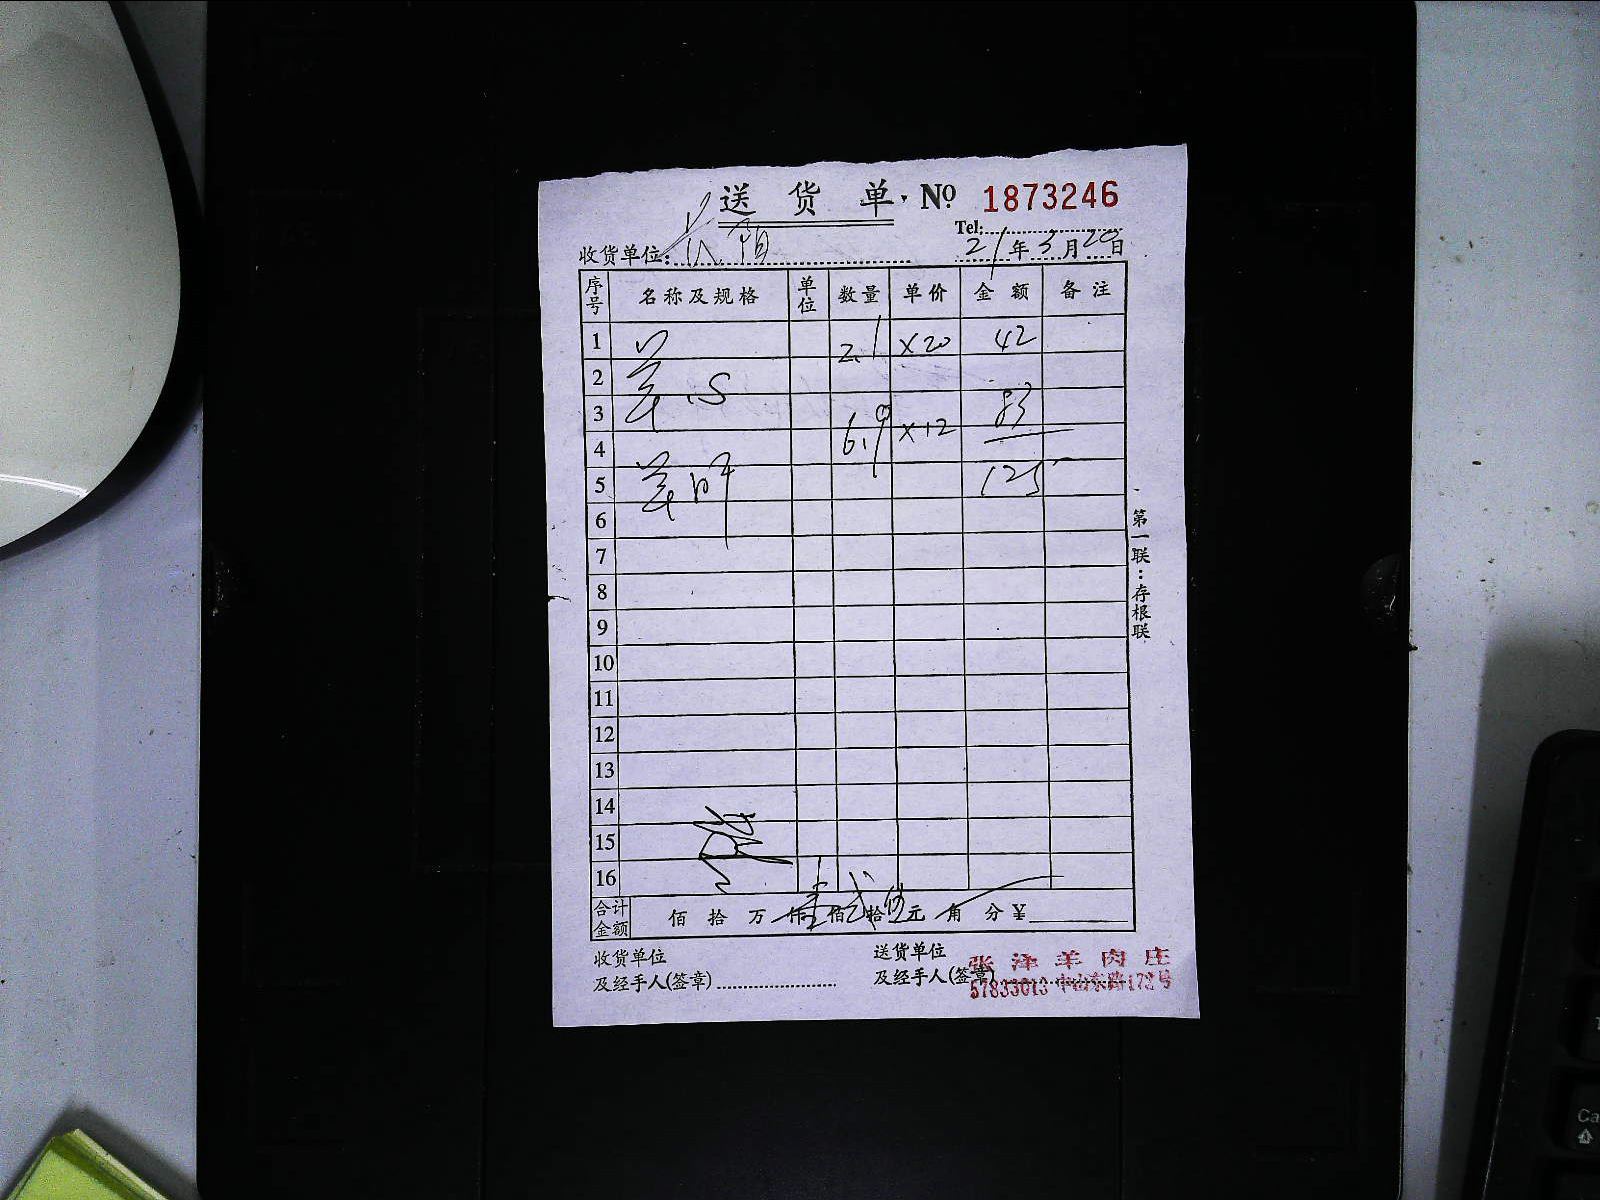 送货单 No 1873246
Tel:
收货单位: 21年3月20日
序号 名称及规格 单位 数量 单价 金额 备注
1 2.1 ×20 42
2 羊心
3 83
4 6.9 ×12
5 羊肝 125
6
7
8
9
10
11
12
13
14
15
16
合计金额 佰 拾 万 仟 壹佰 贰拾 伍元 角 分 ¥
第一联:存根联
收货单位 送货单位
及经手人(签章) 及经手人(签章)
张泽羊肉庄
57833013 中山东路172号